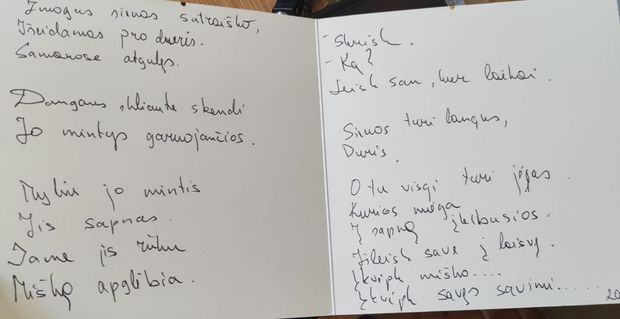 Žmogus sienas sutraiško,
Išeidamas pro duris.
Samanose atgulęs.
Dangaus skliaute skendi
Jo mintys garuojančios.
Myliu jo mintis
Jis sapnas.
Jame jis rūku
Mišką apglėbia.
- Skrisk.
- Ką?
Leisk sau, ker laikai.
Sienos turi langus,
Duris.
O tu visgi turi jėgas.
Kurios miega
Į sapną įkibusios.
Išleisk save į laisvę.
Įkvėpk miško....
Įkvėpk savęs savimi.....
20